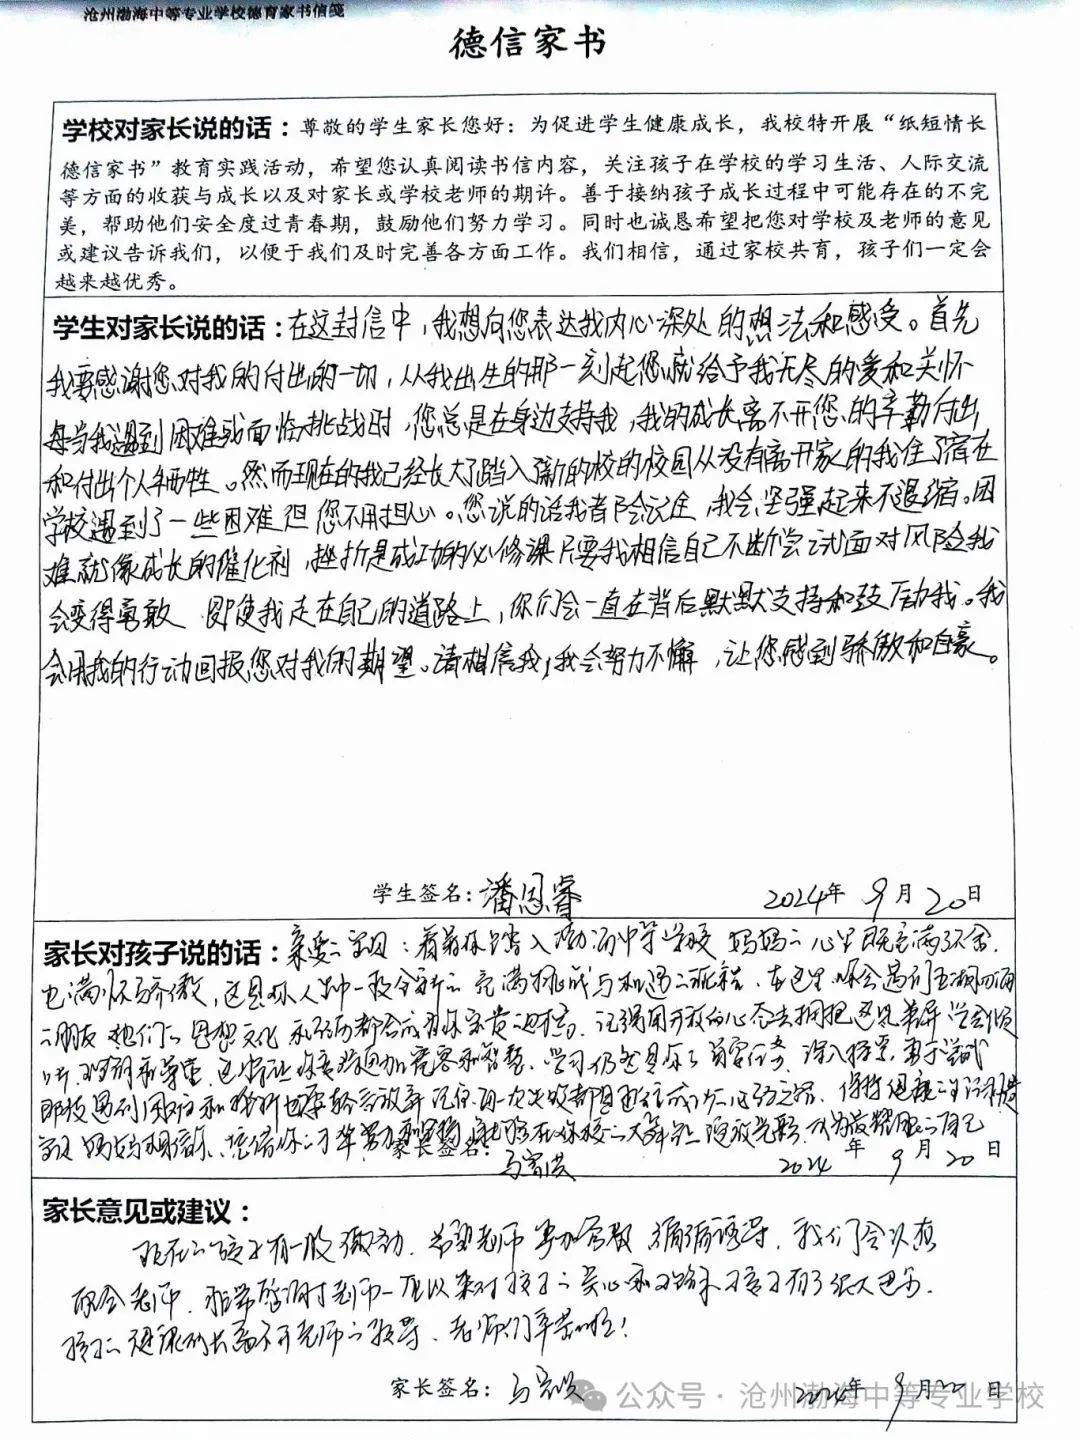 沧州渤海中等专业学校德育家书信笺
德信家书
学校对家长说的话：尊敬的学生家长您好：为促进学生健康成长，我校特开展“纸短情长
德信家书”教育实践活动，希望您认真阅读书信内容，关注孩子在学校的学习生活、人际交流
等方面的收获与成长以及对家长或学校老师的期许。善于接纳孩子成长过程中可能存在的不完
美，帮助他们安全度过青春期，鼓励他们努力学习。同时也诚恳希望把您对学校及老师的意见
或建议告诉我们，以便于我们及时完善各方面工作。我们相信，通过家校共育，孩子们一定会
越来越优秀。
学生对家长说的话：在这封信中，我想向您表达我内心深处的想法和感受。首先
我要感谢您对我的付出的一切，从我出生的那一刻起您就给予我无尽的爱和关怀
每当我遇到困难或面临挑战时，您总是在身边支持我，我的成长离不开您的辛勤付出
和付出个人牺牲。然而现在的我已经长大了踏入了新的校的校园从没有离开家的我住了宿在
学校遇到了一些困难但您不用担心。您说的话我都会记住，我会坚强起来不退缩。困
难就像成长的催化剂，挫折是成功的必修课只要我相信自己不断尝试面对风险我
会变得勇敢 即使我走在自己的道路上，你们会一直在背后默默支持和鼓励我。我
会用我的行动回报您对我的期望。请相信我，我会努力不懈，让您感到骄傲和自豪。
学生签名：潘恩睿 2024年9月20日
家长对孩子说的话：亲爱二宝贝：看着你踏入渤海中等学校 妈妈二心里既充满了不舍，
也满怀骄傲，这是你人生中一段全新二充满挑战与机遇二旅程，在这里你会遇到五湖四海
二朋友 他们二思想文化和经历都会成为你宝贵二
听，理解和尊重，这将让你变得更加宽容和智慧，学习仍然是你二首要任务，深入探索，勇于尝试
即使遇到困难和挫折也不要轻言放弃 记住每一次失败都是通往成功二必经之路，保持
妈妈相信你，凭借你二才华努力和坚持
家长签名： 2024年9月20日
家长意见或建议：
现在二孩子有一股 希望老师 严加管教 循循诱导，我们会认真
配合老师，非常感谢老师一直以来对孩子二关心和 孩子有了很大进步，
孩子二进步成长离不开老师二教导，老师们辛苦啦！
家长签名： 2024年9月20日
公众号·沧州渤海中等专业学校